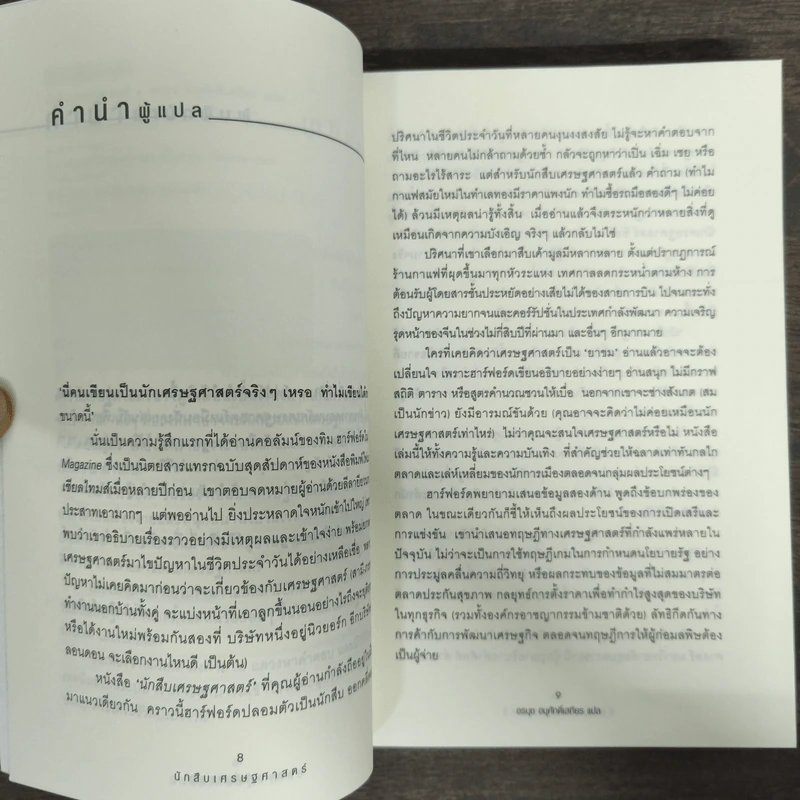 คำนำผู้แปล
'นี่คนเขียนเป็นนักเศรษฐศาสตร์จริงๆ เหรอ ทำไมเขียนได้
ขนาดนี้'
นั่นเป็นความรู้สึกแรกที่ได้อ่านคอลัมน์ของทิม ฮาร์ฟอร์ด
Magazine ซึ่งเป็นนิตยสารแทรกฉบับสุดสัปดาห์ของหนังสือพิมพ์
เชียลไทมส์เมื่อหลายปีก่อน เขาตอบจดหมายผู้อ่านด้วยลีลา
ประสาทเอามากๆ แต่พออ่านไป ยิ่งประหลาดใจหนักเข้าไปใหญ่
พบว่าเขาอธิบายเรื่องราวอย่างมีเหตุผลและเข้าใจง่าย พร้อม
เศรษฐศาสตร์มาไขปัญหาในชีวิตประจำวันได้อย่างเหลือเชื่อ
ปัญหาไม่เคยคิดมาก่อนว่าจะเกี่ยวข้องกับเศรษฐศาสตร์
ทำงานนอกบ้านทั้งคู่ จะแบ่งหน้าที่เอาลูกขึ้นนอนอย่างไรถึงจะ
หรือได้งานใหม่พร้อมกันสองที่ บริษัทหนึ่งอยู่นิวยอร์ก
ลอนดอน จะเลือกงานไหนดี เป็นต้น)
หนังสือ 'นักสืบเศรษฐศาสตร์' ที่คุณผู้อ่านกำลังถืออยู่
มาแนวเดียวกัน คราวนี้ฮาร์ฟอร์ดปลอมตัวเป็นนักสืบ
8
นักสืบเศรษฐศาสตร์
ปริศนาในชีวิตประจำวันที่หลายคนงุนงงสงสัย ไม่รู้จะหาคำตอบจาก
ที่ไหน หลายคนไม่กล้าถามด้วยซ้ำ กลัวจะถูกหาว่าเปิ่น เฉิ่ม เชย หรือ
ถามอะไรไร้สาระ แต่สำหรับนักสืบเศรษฐศาสตร์แล้ว คำถาม (ทำไม
กาแฟสมัยใหม่ในทำเลทองมีราคาแพงนัก ทำไมซื้อรถมือสองดีๆ ไม่ค่อย
ได้) ล้วนมีเหตุผลน่ารู้ทั้งสิ้น เมื่ออ่านแล้วจึงตระหนักว่าหลายสิ่งที่ดู
เหมือนเกิดจากความบังเอิญ จริงๆ แล้วกลับไม่ใช่
ปริศนาที่เขาเลือกมาสืบเค้ามูลมีหลากหลาย ตั้งแต่ปรากฏการณ์
ร้านกาแฟที่ผุดขึ้นมาทุกหัวระแหง เทศกาลลดกระหน่ำตามห้าง การ
ต้อนรับผู้โดยสารชั้นประหยัดอย่างเสียไม่ได้ของสายการบิน ไปจนกระทั่ง
ถึงปัญหาความยากจนและคอร์รัปชั่นในประเทศกำลังพัฒนา ความเจริญ
รุดหน้าของจีนในช่วงไม่กี่สิบปีที่ผ่านมา และอื่นๆ อีกมากมาย
ใครที่เคยคิดว่าเศรษฐศาสตร์เป็น 'ยาขม' อ่านแล้วอาจจะต้อง
เปลี่ยนใจ เพราะฮาร์ฟอร์ดเขียนอธิบายอย่างง่ายๆ อ่านสนุก ไม่มีกราฟ
สถิติ ตาราง หรือสูตรคำนวณชวนให้เบื่อ นอกจากเขาจะช่างสังเกต (สม
เป็นนักข่าว) ยังมีอารมณ์ขันด้วย (คุณอาจจะคิดว่าไม่ค่อยเหมือนนัก
เศรษฐศาสตร์เท่าไหร่) ไม่ว่าคุณจะสนใจเศรษฐศาสตร์หรือไม่ หนังสือ
เล่มนี้ให้ทั้งความรู้และความบันเทิง ที่สำคัญช่วยให้ฉลาดเท่าทันกลไก
ตลาดและเล่ห์เหลี่ยมของนักการเมืองตลอดจนกลุ่มผลประโยชน์ต่างๆ
ฮาร์ฟอร์ดพยายามเสนอข้อมูลสองด้าน พูดถึงข้อบกพร่องของ
ตลาด ในขณะเดียวกันก็ชี้ให้เห็นถึงผลประโยชน์ของการเปิดเสรีและ
การแข่งขัน เขานำเสนอทฤษฎีทางเศรษฐศาสตร์ที่กำลังแพร่หลายใน
ปัจจุบัน ไม่ว่าจะเป็นการใช้ทฤษฎีเกมในการกำหนดนโยบายรัฐ อย่าง
การประมูลคลื่นความถี่วิทยุ หรือผลกระทบของข้อมูลที่ไม่สมมาตรต่อ
ตลาดประกันสุขภาพ กลยุทธ์การตั้งราคาเพื่อทำกำไรสูงสุดของบริษัท
ในทุกธุรกิจ (รวมทั้งองค์กรอาชญากรรมข้ามชาติด้วย) ลัทธิกีดกันทาง
การค้ากับการพัฒนาเศรษฐกิจ ตลอดจนทฤษฎีการให้ผู้ก่อมลพิษต้อง
เป็นผู้จ่าย
9
อรนุช อนุศักดิ์เสถียร แปล